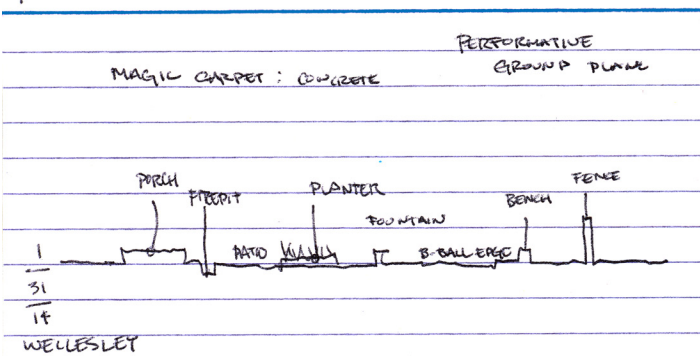 PERFORMATIVE
GROUND PLANE
MAGIC CARPET : CONCRETE
PORCH
FIREPIT
PLANTER
FENCE
BENCH
FOUNTAIN
PATIO
B-BALL EDGE
1
31
14
WELLESLEY